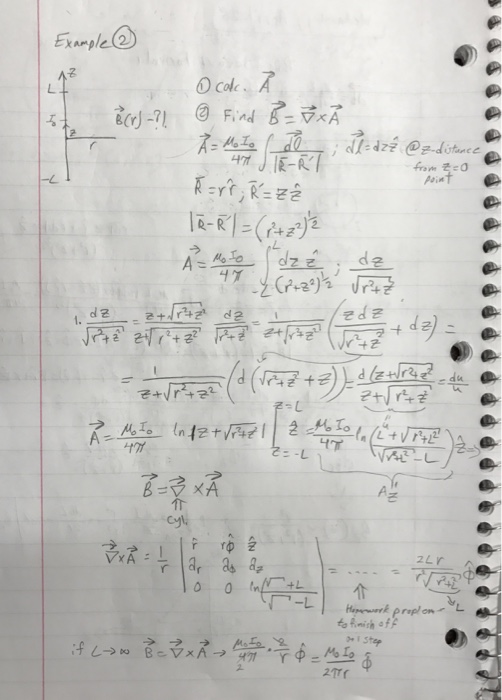 Example ②
z
L
I₀
z
r
-L
B⃗(r) -?!
① calc. A⃗
② Find B⃗ = ∇⃗ × A⃗
A⃗ = μ₀I₀/4π ∫ dl⃗/|R̄-R̄'| ; dl⃗ = dz ẑ @ z-distance from z=0 point
R̄ = r r̂ ; R̄' = z ẑ
|R̄-R̄'| = (r²+z²)^½
A⃗ = μ₀I₀/4π ∫_{-L}^{L} dz ẑ/(r²+z²)^½ ; dz/√(r²+z²)
1. dz/√(r²+z²) = (z+√(r²+z²))/(z+√(r²+z²)) dz/√(r²+z²) = 1/(z+√(r²+z²)) (z dz/√(r²+z²) + dz) =
= 1/(z+√(r²+z²)) (d(√(r²+z²) + z)) = d(z+√(r²+z²))/(z+√(r²+z²)) = du/u
A⃗ = μ₀I₀/4π ln|z+√(r²+z²)| |_{z=-L}^{z=L} ẑ = μ₀I₀/4π ln((L+√(r²+L²))/(√(r²+L²)-L)) ẑ ⇒
A_z
B⃗ = ∇⃗ × A⃗
⇑
cyl.
∇⃗×A⃗ = 1/r | r̂ rφ̂ ẑ
∂r ∂φ ∂z
0 0 ln (√ +L)/(√ -L) | = ..... = 2Lr/(r²√(r²+L²)) φ̂
⇑
Homework problem
to finish off
this step
if L→∞ B⃗ = ∇⃗×A⃗ → μ₀I₀/4π · 2/r φ̂ = μ₀I₀/2πr φ̂